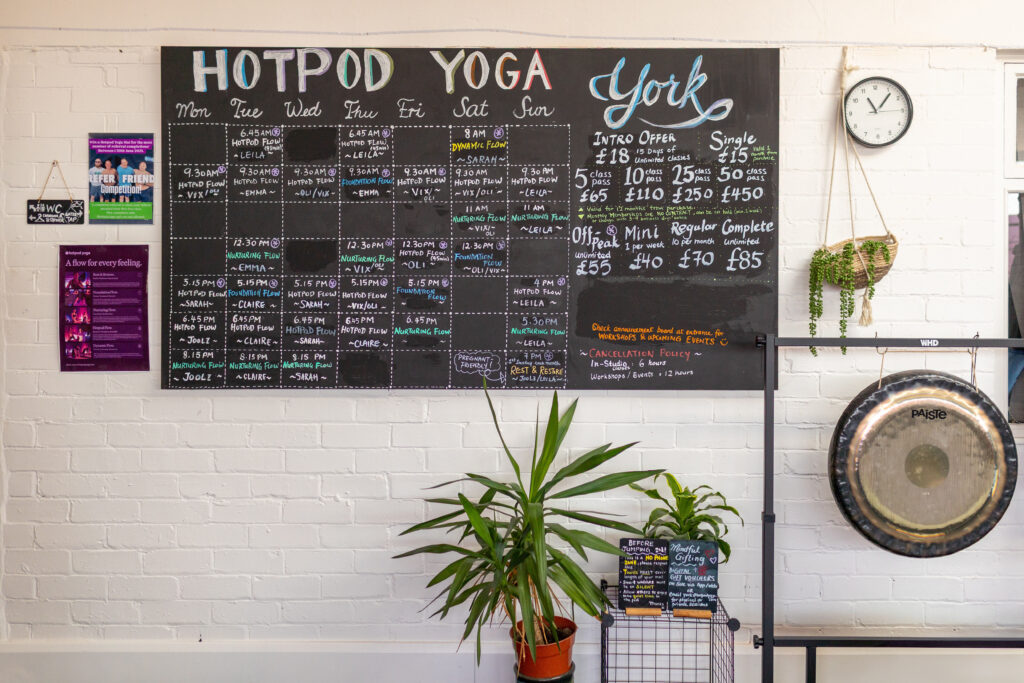 HOTPOD YOGA
York
Mon Tue Wed Thu Fri Sat Sun
6.45AM
HOTPOD FLOW
~LEILA~
6.45AM
HOTPOD FLOW
~LEILA~
8 AM
DYNAMIC FLOW
~SARAH~
9.30AM
HOTPOD FLOW
~VIX/
9.30AM
HOTPOD FLOW
~EMMA~
9.30AM
HOTPOD FLOW
9.30AM
FOUNDATION FLOW
~EMMA~
9.30AM
HOTPOD FLOW
~VIX~
9.30AM
HOTPOD FLOW
~VIX/OLI~
9.30AM
HOTPOD FLOW
~LEILA~
11 AM
NURTURING FLOW
11 AM
NURTURING FLOW
~LEILA~
12.30PM
NURTURING FLOW
~EMMA~
12.30PM
NURTURING FLOW
~VIX/
12.30PM
HOTPOD FLOW
~OLI~
12.30PM
FOUNDATION FLOW
~OLI/VIX~
5.15PM
HOTPOD FLOW
~SARAH~
5.15PM
FOUNDATION FLOW
~CLAIRE~
5.15PM
HOTPOD FLOW
~SARAH~
5.15PM
HOTPOD FLOW
~VIX/OLI
5.15PM
FOUNDATION FLOW
4 PM
HOTPOD FLOW
~LEILA~
6.45PM
HOTPOD FLOW
~JOOLZ
6.45PM
HOTPOD FLOW
~CLAIRE
6.45PM
HOTPOD FLOW
~SARAH
6.45PM
HOTPOD FLOW
~CLAIRE~
6.45PM
NURTURING FLOW
5.30PM
NURTURING FLOW
~LEILA~
8.15PM
NURTURING FLOW
~JOOLZ
8.15PM
NURTURING FLOW
~CLAIRE~
8.15PM
NURTURING FLOW
~SARAH~
PREGNANT FRIENDLY!
7 PM
REST & RESTORE
~JOOLZ/LEILA~
INTRO OFFER
£18 15 Days of
Unlimited classes
Single
£15
5 class pass
£65
10 class pass
£110
25 class pass
£250
50 class pass
£450
Off-Peak
unlimited
£55
Mini
1 per week
£40
Regular
10 per month
£70
Complete
unlimited
£85
Check announcement board at entrance for
WORKSHOPS & UPCOMING EVENTS
~CANCELLATION POLICY~
In-Studio : 6 hours
Workshops/Events : 12 hours
REFER FRIEND
Competition!
WC
hotpod yoga
A flow for every feeling.
WHD
PAISTE
BEFORE
JUMPING
Mindful
Gifting
DIGITAL
GIFT VOUCHERS